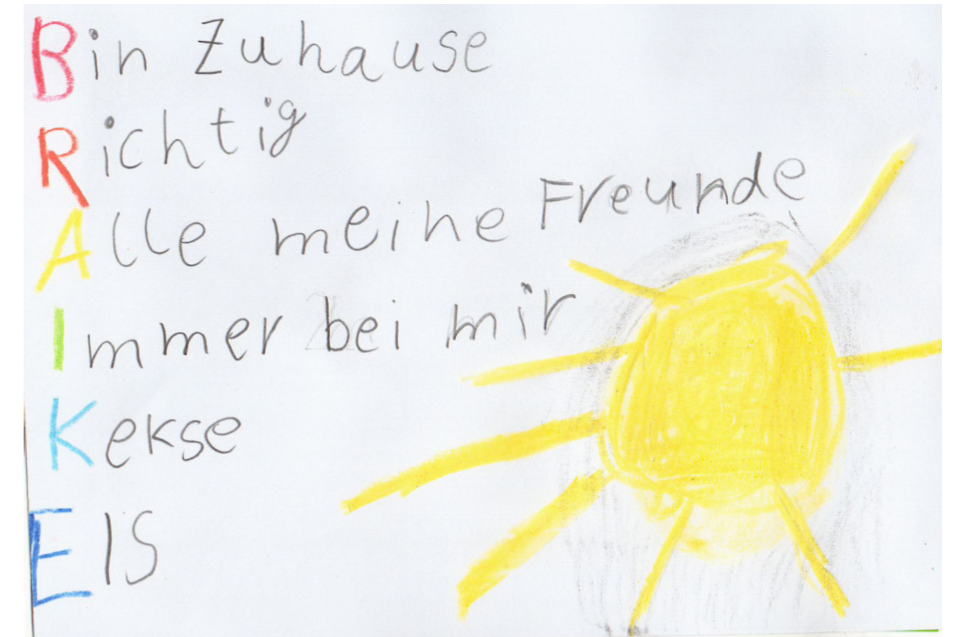 Bin Zuhause
Richtig
Alle meine Freunde
Immer bei mir
Kekse
EIS